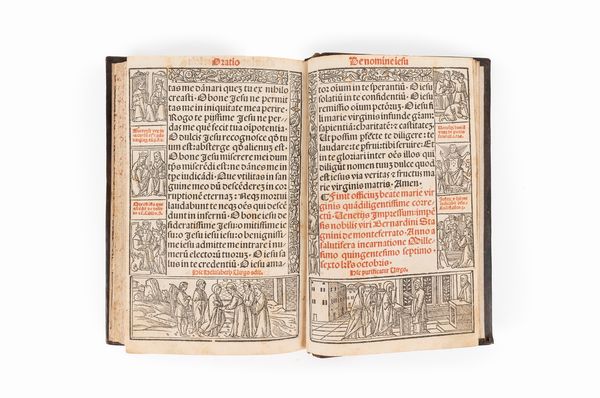 Oratio
tas me dānari quez tu ex nihilo
creasti · O bone Jesu ne permit
tas me in iniquitate mea perire·
Rogo te pijssime Jesu ne per-
das me quē fecit tua oīpotentia·
O dulcis Jesu recognosce qd tu
um est: absterge qd alienuz est·
O bone Jesu miserere mei dum
tps miserēdi est: ne dānes me in
tpe iudicādi· Que vtilitas in san
guine meo dū descēderez in cor
ruptionē eternaz: Neqz mortui
laudabunt te neqz oēs qui descē
dunt in infernū· O bone iesu de
sideratissime Jesu o mitissime ie
su: o Jesu iesu iesu benignissi
me iesu admitte me intrare i nu
merū electorū tuoruz· O iesu sa
lus in te credentiū· O iesu ama-
Hic Helisabeth Virgo
De nomine iesu
tor oīum in te sperantiū· O iesu
solatiū in te confidentiū· O iesu
remissio oīum petōruz· O iesu fi
li marie virginis infunde gīam:
sapientiā: charitatē: z castitatez·
Ut possim pfecte te diligere: te
laudare: te pfrui: tibi seruire: Et
in te gloriari inter oēs illos qui
diligūt nomen tuuz dulce quod
est iesus via veritas z fructus ma
rie virginis matris· Amen·
Finit officiuz beate marie vir
ginis quādiligentissime corre-
ctū· Uenetijs Impressum impē
sis nobilis viri Bernardini Sta
gnini de monteferrato· Anno a
salutifera incarnatione Mille-
simo quingentesimo septimo·
sexto kl's octobris·
Hic purificatur Virgo·